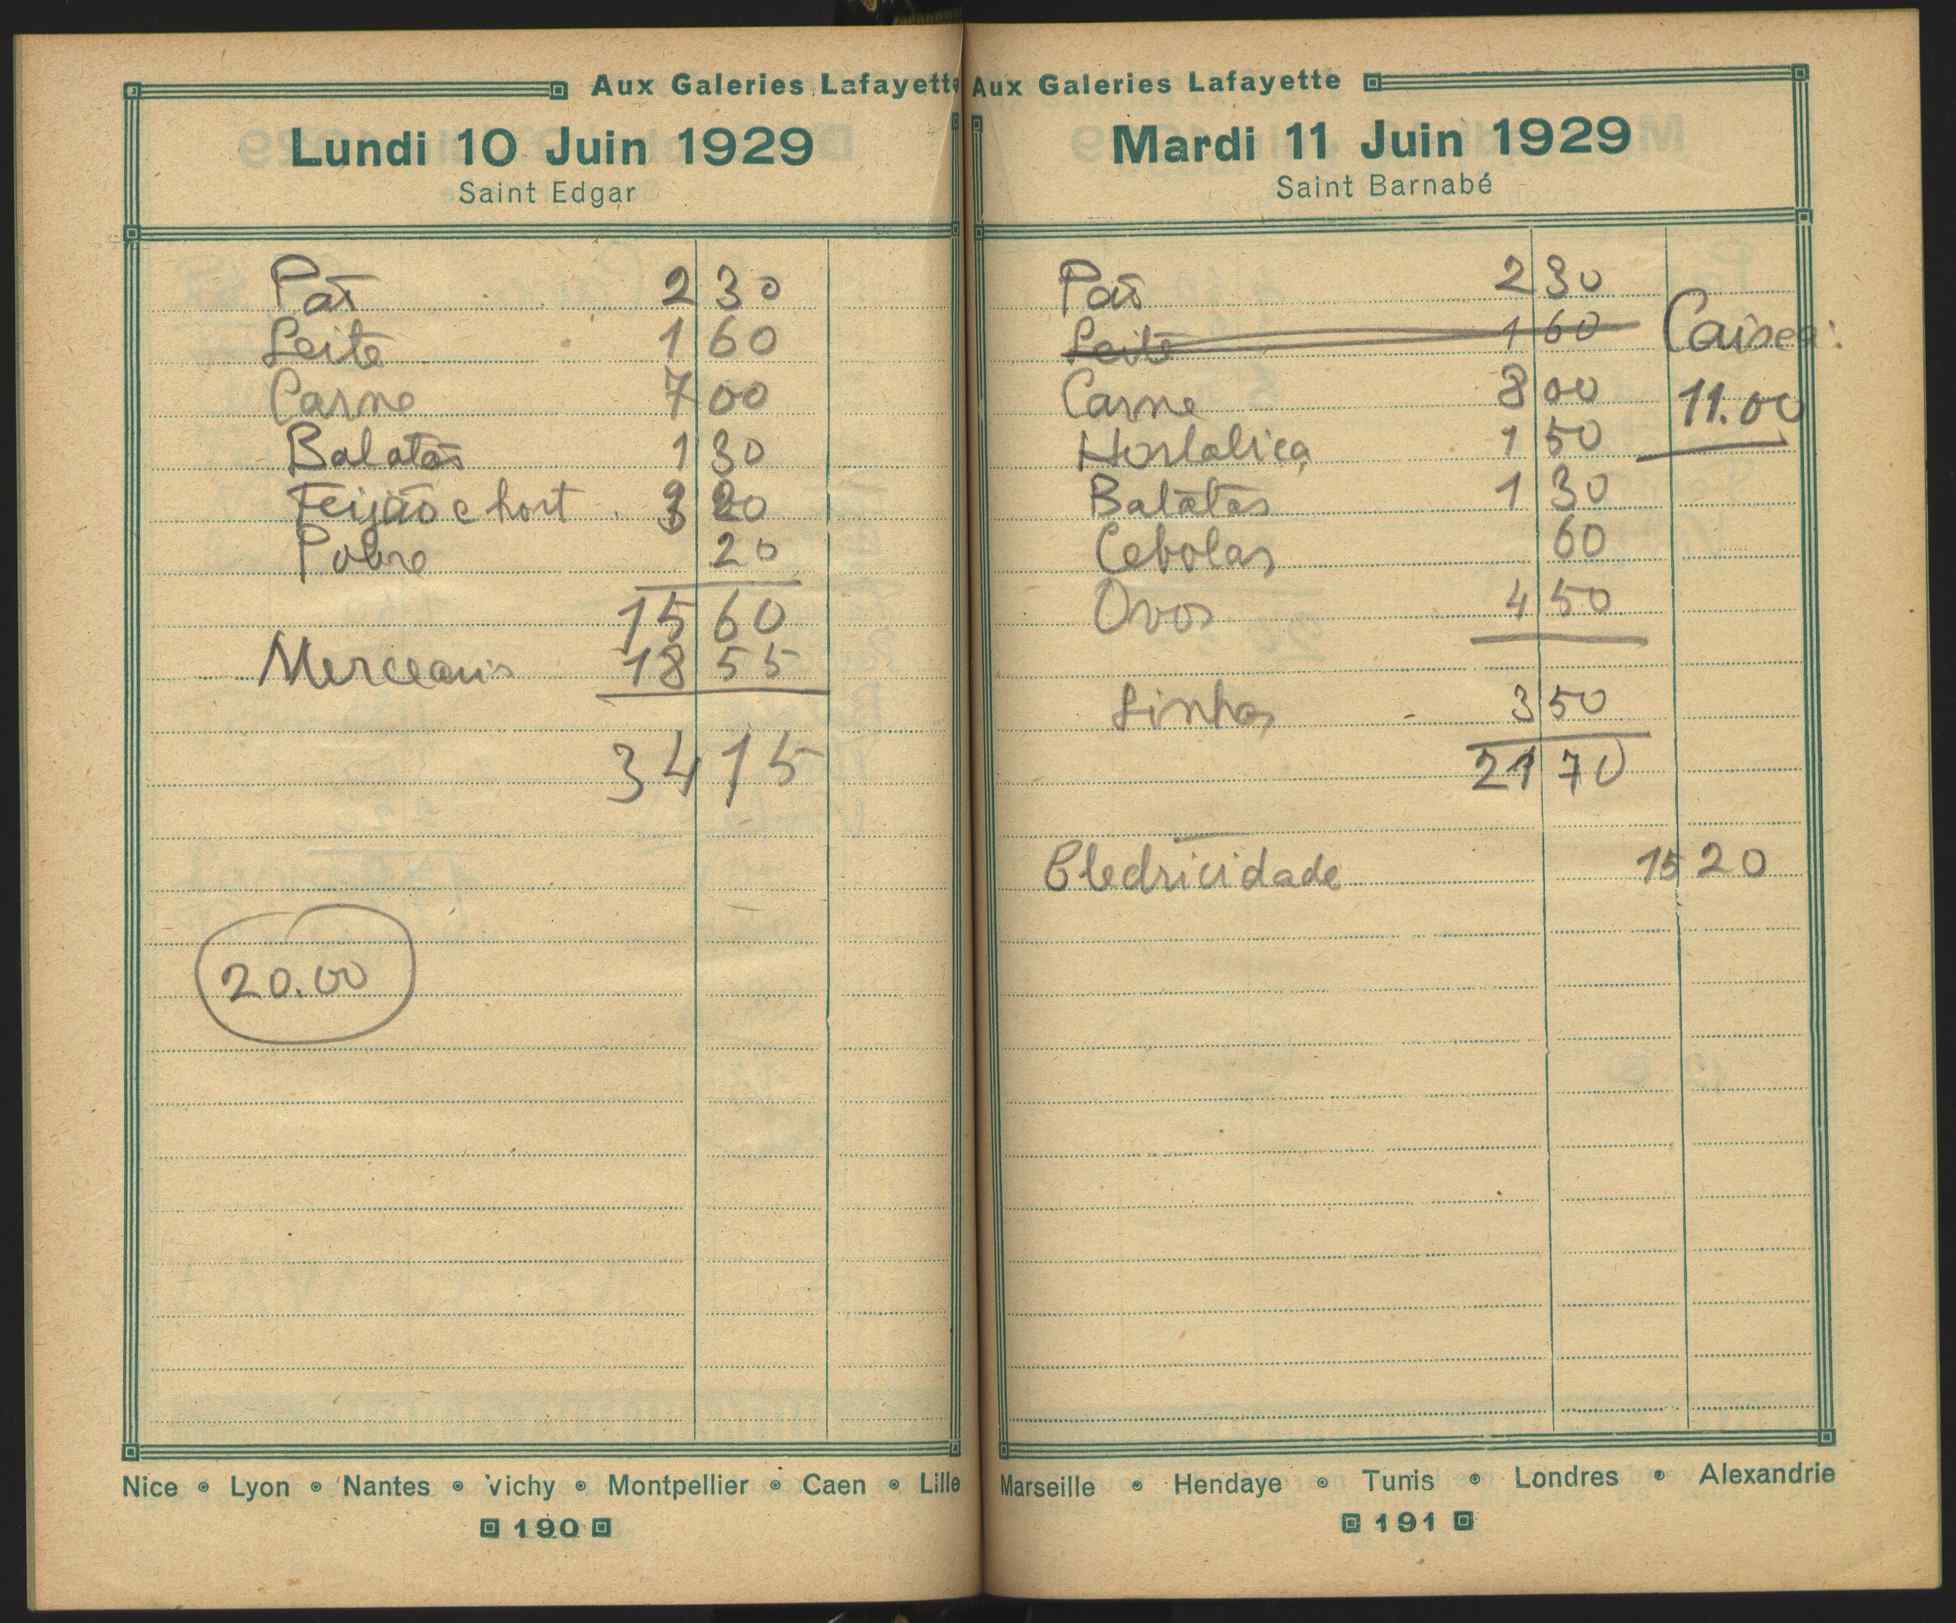 Aux Galeries Lafayette
Lundi 10 Juin 1929
Saint Edgar
Pão 2 30
Leite 1 60
Carne 7 00
Batatas 1 30
Feijão e hort 3 20
Pobre 20
15 60
Mercearia 18 55
34 15
20.00
Nice Lyon Nantes Vichy Montpellier Caen Lille
190
Aux Galeries Lafayette
Mardi 11 Juin 1929
Saint Barnabé
Pão 2 30
Leite 1 60
Caixa:
Carne 8 00
11.00
Hortaliça 1 50
Batatas 1 30
Cebolas 60
Ovos 4 50
Linhas 3 50
21 70
Electricidade 15 20
Marseille Hendaye Tunis Londres Alexandrie
191